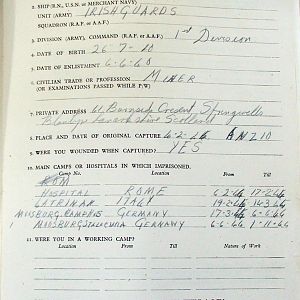 2. SHIP (R.N., U.S.N. OR MERCHANT NAVY)
UNIT (ARMY) IRISH GUARDS
SQUADRON (R.A.F. OR A.A.F.)
3. DIVISION (ARMY), COMMAND (R.A.F. OR A.A.F.) 1st Division
4. DATE OF BIRTH 26-7-20
5. DATE OF ENLISTMENT 6-6-40
6. CIVILIAN TRADE OR PROFESSION MINER
(OR EXAMINATIONS PASSED WHILE P/W)
7. PRIVATE ADDRESS 61 Barnside Crescent, Springwells
Blantyre Lanarkshire Scotland
8. PLACE AND DATE OF ORIGINAL CAPTURE 6-2-44 ANZIO
9. WERE YOU WOUNDED WHEN CAPTURED? YES
10. MAIN CAMPS OR HOSPITALS IN WHICH IMPRISONED.
Camp No. Location From Till
HOSPITAL ROME 6-2-44 17-2-44
ITALY 19-2-44 14-3-44
GERMANY 17-3-44
6-6-44 1-11-44
11. WERE YOU IN A WORKING CAMP?
Location From Till Nature of Work